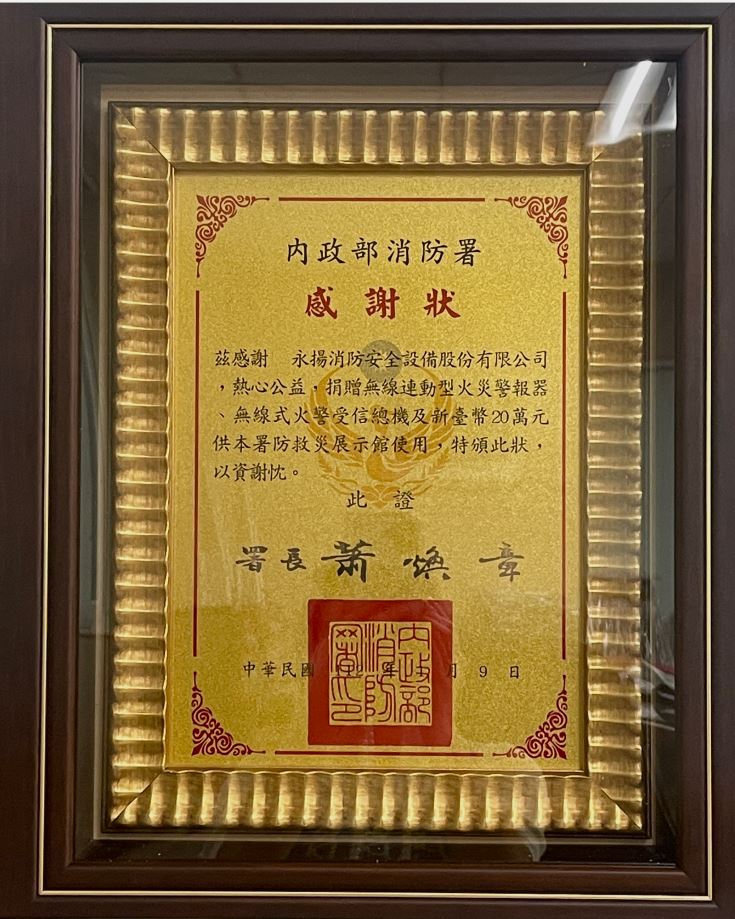 內政部消防署
感謝狀
茲感謝 永揚消防安全設備股份有限公司
，熱心公益，捐贈無線連動型火災警報器
、無線式火警受信總機及新臺幣20萬元
供本署防救災展示館使用，特頒此狀，
以資謝忱。
此 證
署長 蕭 煥 章
中華民國 年 月 9 日
內政部
消防
署印